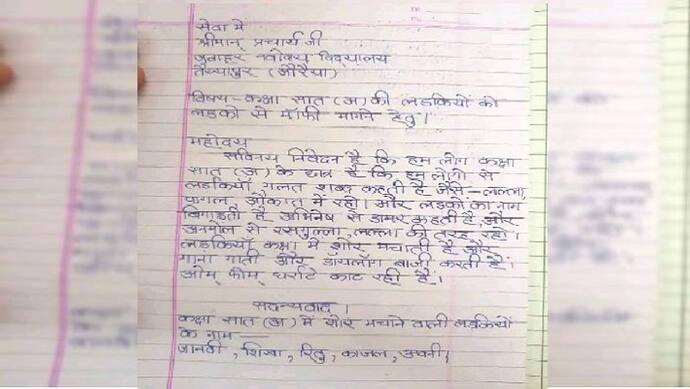 सेवा में
श्रीमान् प्रचार्य जी
जवाहर नवोदय विद्यालय
तैय्यापुर (औरैया)
विषय- कक्षा सात (अ) की लडकियों को
लडको से मॉफी मागने हेतु।
महोदय
सविनय निवेदन है कि हम लोग कक्षा
सात (अ) के छात्र है कि हम लोगो से
लडकियाँ गलत शब्द कहती है जैसे - लल्ला,
पागल, औकात में रहो। और लडको का नाम
बिगाडती है अभिनेष से डामर कहती है, और
अनमोल से रसगुल्ला, लल्ला की तरह रहो।
लडकियाँ कक्षा में शोर मचाती है और
गाना गाती और डॉयलॉग बाजी करती है।
ओम् फोम् धर्राटे काट रही है।
सदन्यवाद।
कक्षा सात (अ) में शोर मचाने वाली लडकियों
के नाम -
जानवी, शिखा, रितु, काजल,